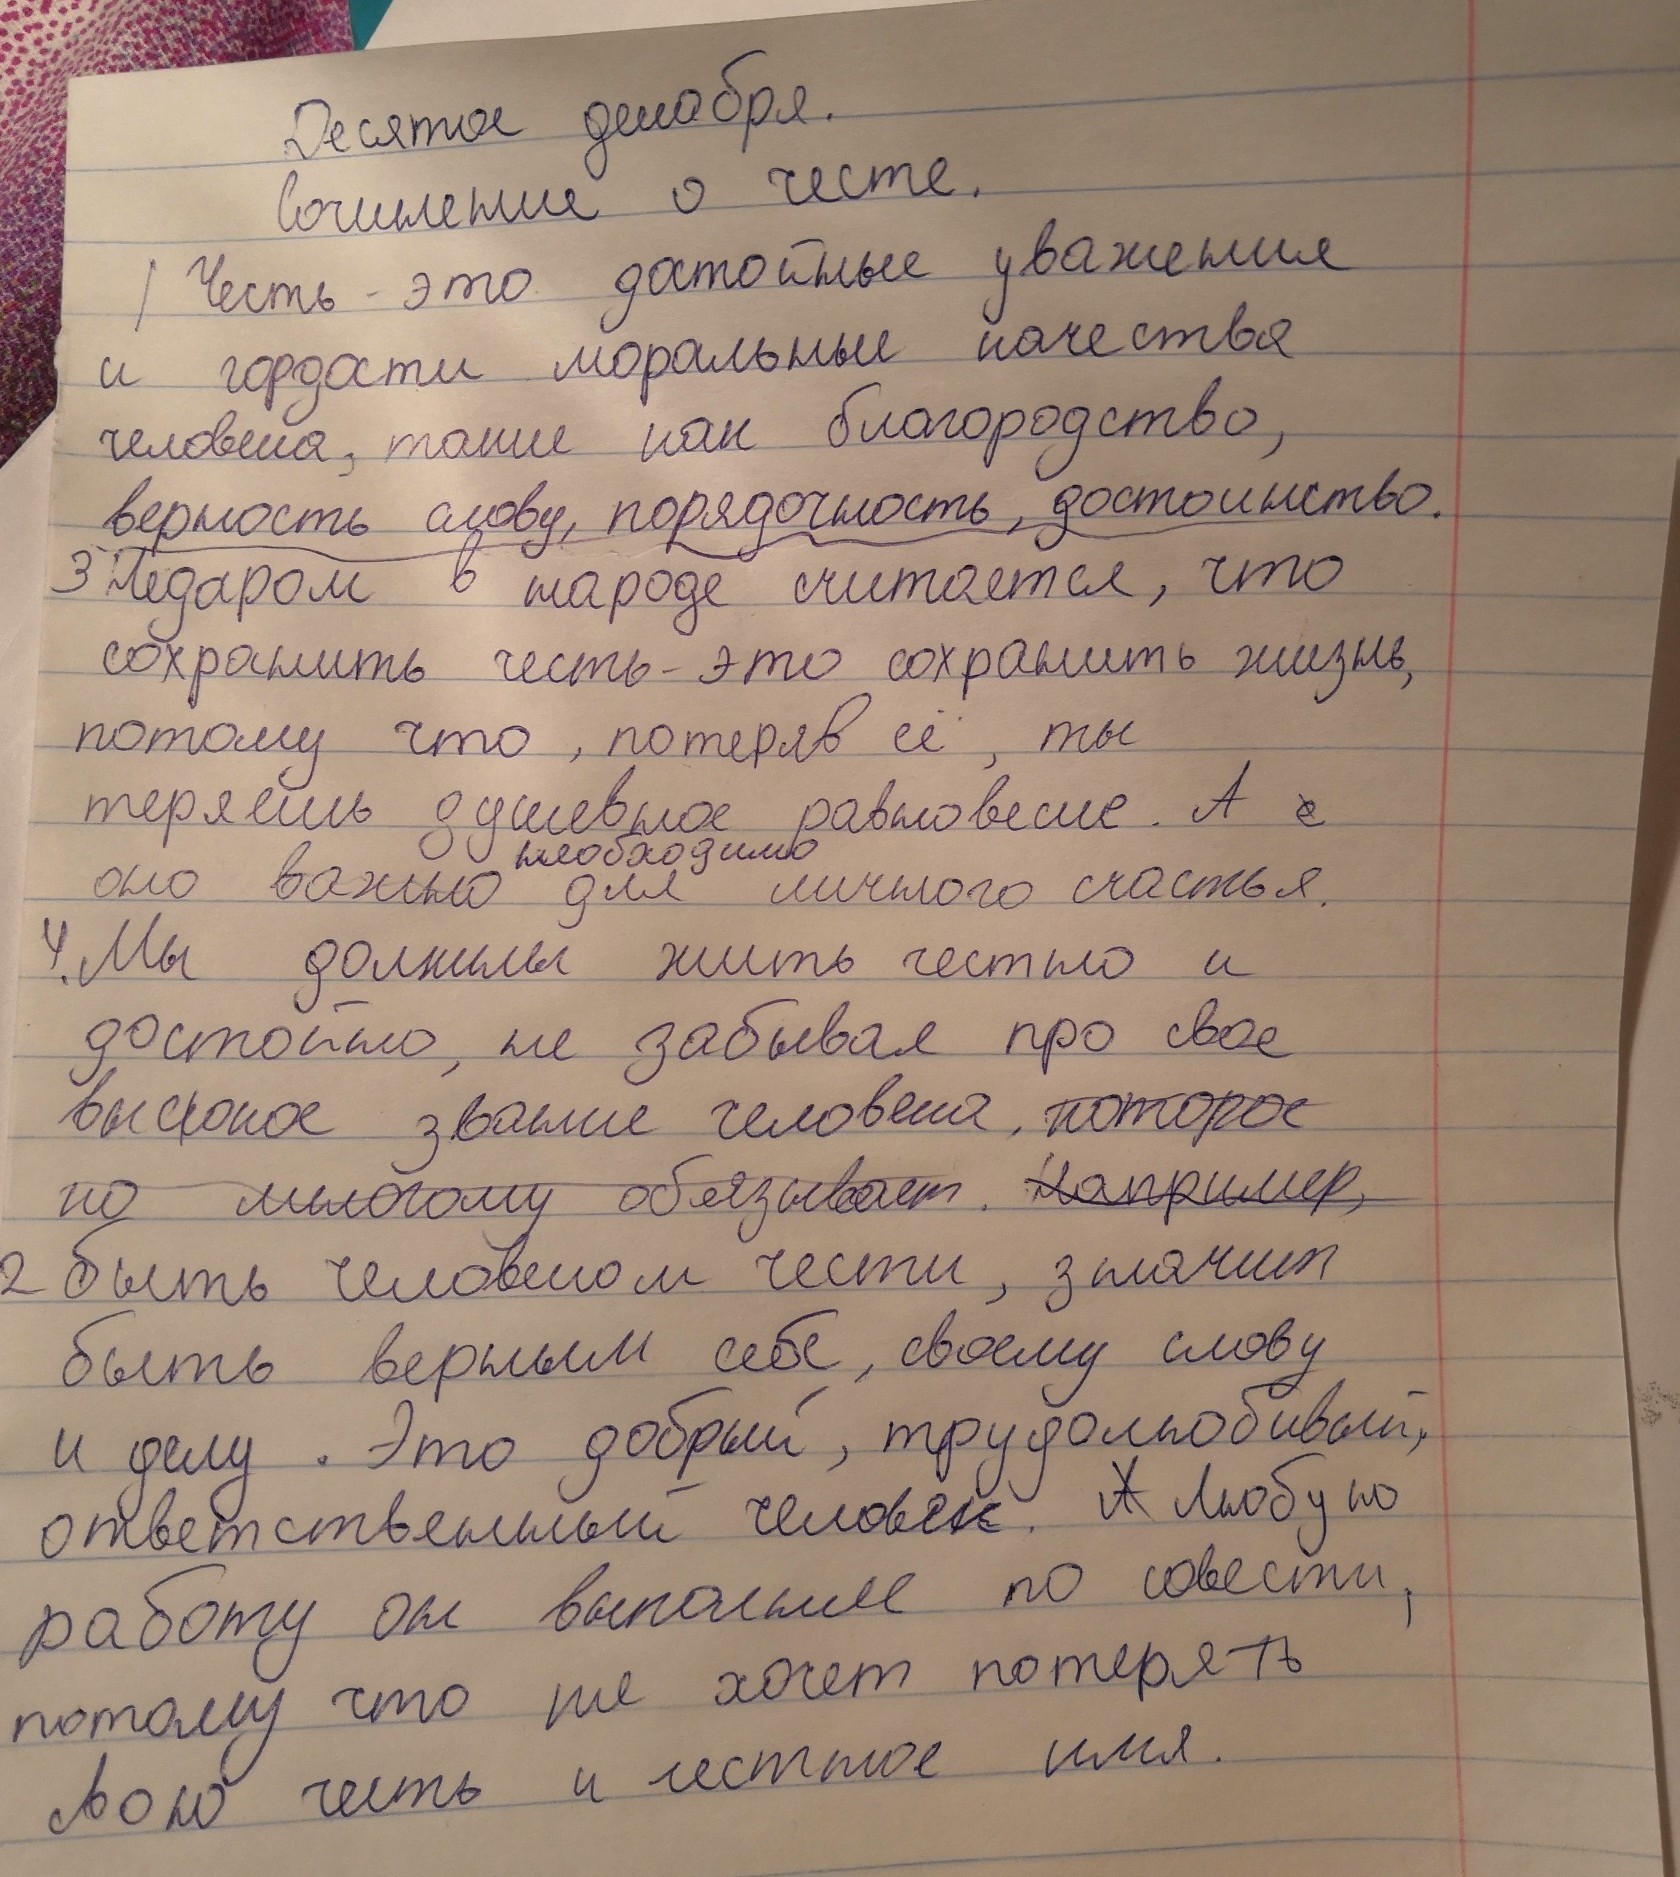 Десятое декабря.
Сочинение о честе.
1 Честь - это достойные уважения
и гордости моральные качества
человека, такие как благородство,
верность слову, порядочность, достоинство.
3 Недаром в народе считается, что
сохранить честь - это сохранить жизнь,
потому что, потеряв её, ты
теряешь душевное равновесие. А е
необходимо
оно важно для личного счастья.
4. Мы должны жить честно и
достойно, не забывая про свое
высокое звание человека, которое
ко многому обязывает. Например,
2 быть человеком чести, значит
быть верным себе, своему слову
и делу. Это добрый, трудолюбивый,
ответственный человек. А Любую
работу он выполнит по совести,
потому что не хочет потерять
свою честь и честное имя.